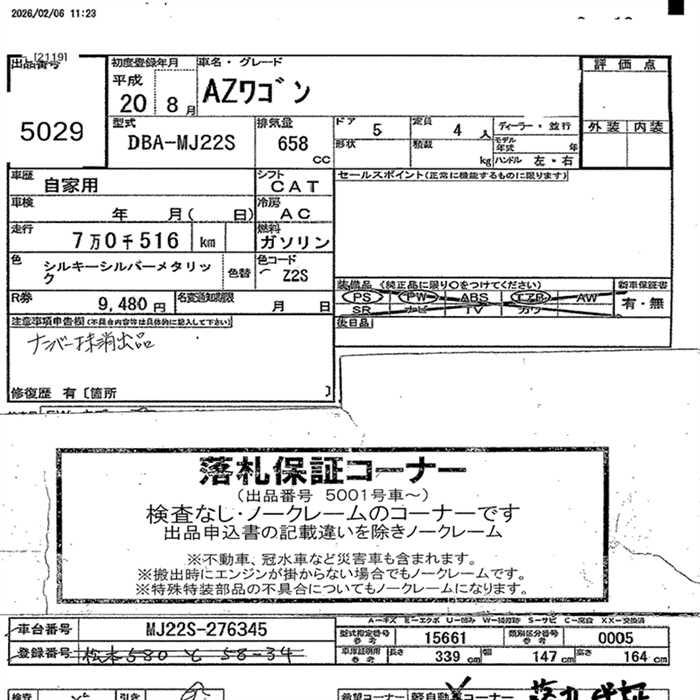 2026/02/06 11:23
[2119]
出品番号
5029
初度登録年月
平成
20 8月
車名・グレード
AZワゴン
評価点
外装 内装
型式
DBA-MJ22S
排気量
658 cc
ドア 5
定員 4 人
形状
積載 kg
ディーラー・並行
モデル年式 年
ハンドル 左・右
車歴
自家用
シフト
CAT
セールスポイント(正常に機能するものに限ります)
車検
年 月( 日)
冷房
AC
走行
7万0千516 km
燃料
ガソリン
色
シルキーシルバーメタリック
色替
色コード
Z2S
装備品 (純正品に限り○をつけてください)
PS PW ABS エアB AW
SR ナビ TV カワ
新車保証書
有・無
R券
9,480円
名変通知期限
月 日
後日品
注意事項申告欄(不具合内容等は具体的に記入して下さい)
ナンバー抹消出品
修復歴 有〔箇所 〕
落札保証コーナー
(出品番号 5001号車~)
検査なし・ノークレームのコーナーです
出品申込書の記載違いを除きノークレーム
※不動車、冠水車など災害車も含まれます。
※搬出時にエンジンが掛からない場合でもノークレームです。
※特殊特装部品の不具合についてもノークレームになります。
A-キズ E-エクボ U-凹み W-補修跡 S-サビ C-腐食 XX-交換済
車台番号
MJ22S-276345
型式指定番号 参考
15661
類別区分番号 参考
0005
登録番号
松本580 と 58-34
車庫証明用 参考
長さ 339 cm
幅 147 cm
高さ 164 cm
検査
引き
希望コーナー
軽自動車コーナー
落札保証